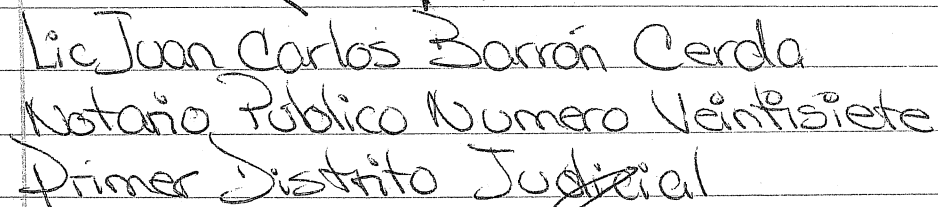 Lic Juan Carlos Barrón Cerda
Notario Público Numero Veintisiete
Primer Distrito Judicial